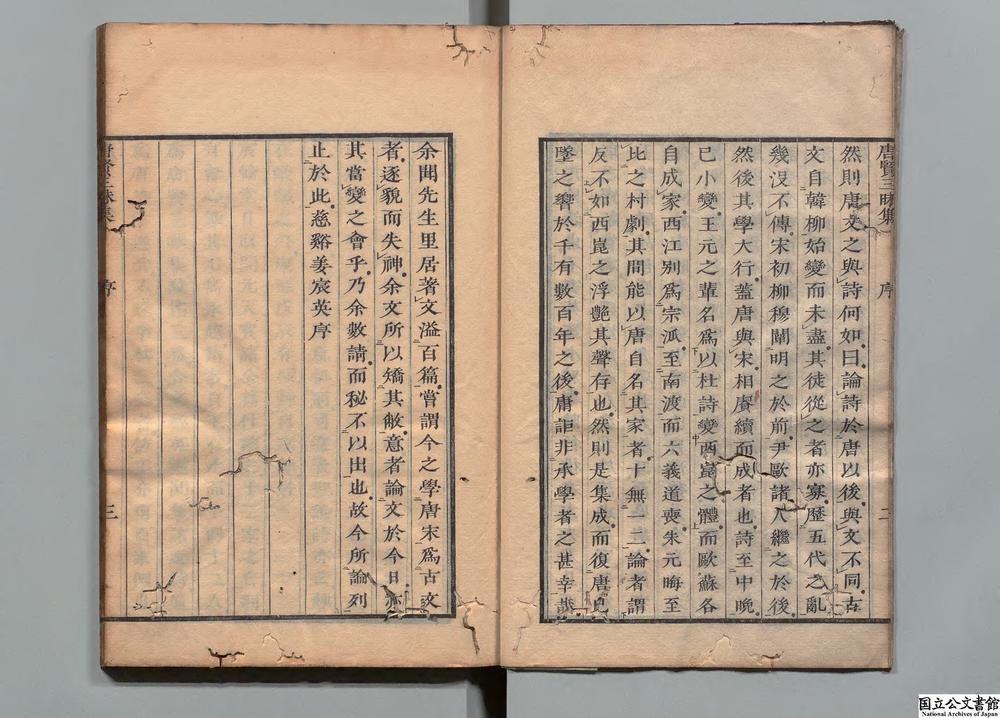 唐賢三昧集
序
二
然則唐文之與詩何如曰論詩於唐以後與文不同古
文自韓柳始變而未盡其徒從之者亦寡歷五代之亂
幾沒不傳宋初柳穆闡明之於前尹歐諸人繼之於後
然後其學大行蓋唐與宋相賡續而成者也詩至中晚
已小變王元之輩名爲以杜詩變西崑之體而歐蘇各
自成家西江别爲宗派至南渡而六義道喪朱元晦至
比之村劇其間能以唐自名其家者十無一二論者謂
反不如西崑之浮艶其聲存也然則是集成而復唐
墜之響於千有數百年之後庸詎非承學者之甚幸哉
余聞先生里居著文溢百篇嘗謂今之學唐宋爲古文
者逐貌而失神余文所以矯其敝意者論文於今日亦
其當變之會乎乃余數請而秘不以出也故今所論列
止於此慈谿姜宸英序
唐賢三昧集
序
三
国立公文書館
National Archives of Japan